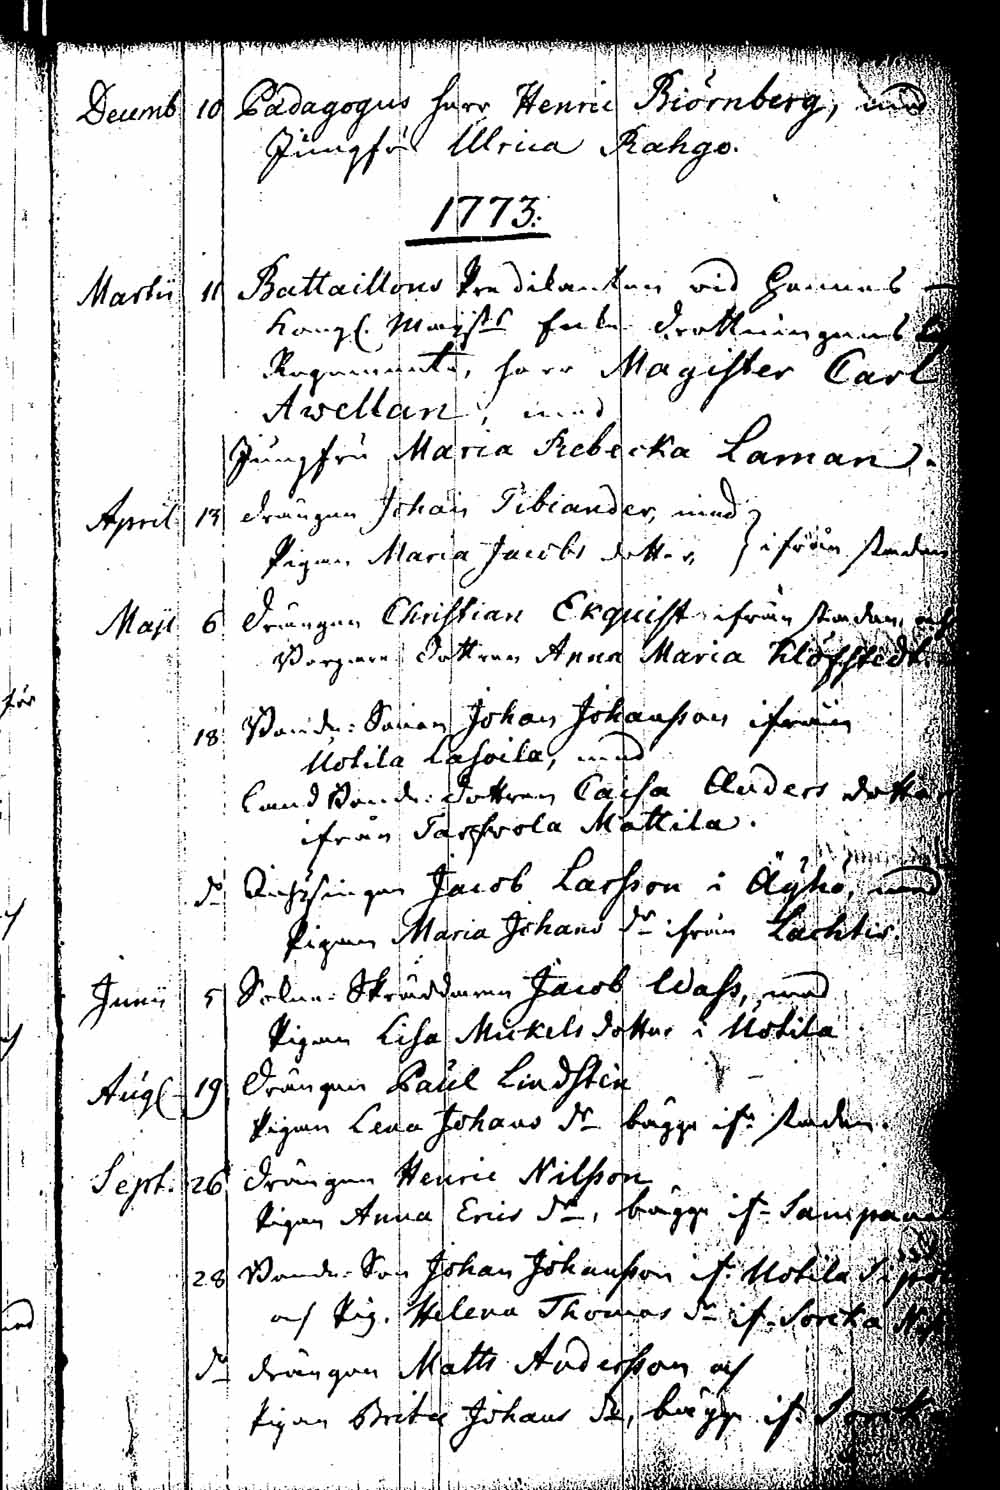 Decemb 10 Pædagogus herr Henric Biörnberg, med
Jungfr: Ulrica Rahgo.
1773.
Martii 11 Battaillons Predikanten vid
Kongl. Maijst Enke Drottningens
Regemente, herr Magister Carl
Awellan, med
Jungfru Maria Rebecka Laman.
April 13 Drängen Johan Tibiander, med
Pigan Maria Jacobs dotter, } ifrån staden
Maji 6 Drängen Christian Ekquist ifrån staden, och
Borgare Dottren Anna Maria Klöfstedt.
18 Bonde-Sonen Johan Johansson ifrån
Uotila Lasoila, med
Land Bonde-Dottren Caisa Anders dotter
ifrån Mattila.
do Inhysingen Jacob Larsson i Äyhö, med
Pigan Maria Johans dr ifrån Lachtis.
Junii 5 Sokne-Skräddaren Jacob Wass, med
Pigan Lisa Mickels dotter i Uotila
Aug. 19 Drängen Paul Lindsten
Pigan Lena Johans dr bägge ifr staden.
Sept. 26 Drängen Henric Nilsson
Pigan Anna Erics dr, bägge ifr Sampaan
28 Bonde-Son Johan Johansson ifr: Uotila
och Pig. Helena Thomas dr ifr Sorcka
do Drängen Matts Andersson och
Pigan Brita Johans dr, bägge ifr: Sorcka
för